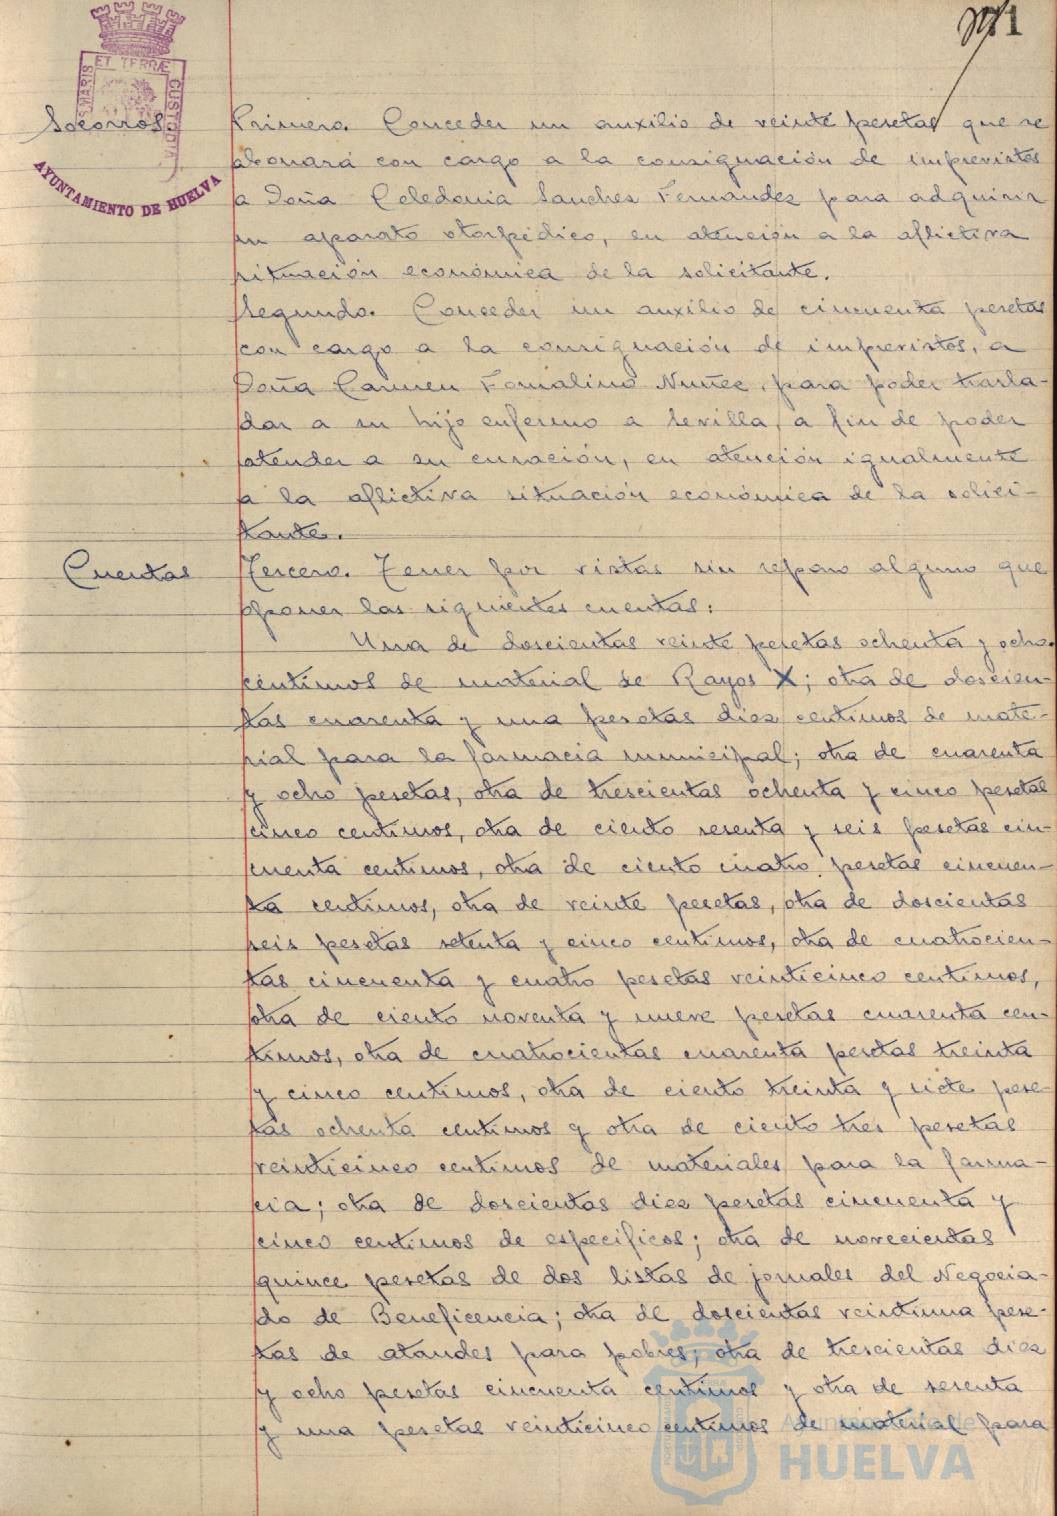 1
ET TERRÆ
MARIS
CUSTODIA
AYUNTAMIENTO DE HUELVA
Socorros
Primero. Conceder un auxilio de veinte pesetas que se
abonará con cargo a la consignación de imprevistos
a Doña Celedonia Sanches Fernandez para adquirir
un aparato otorpédico, en atención a la aflictiva
situación económica de la solicitante.
Segundo. Conceder un auxilio de cincuenta pesetas
con cargo a la consignación de imprevistos, a
Doña Carmen Fornalino Nuñez, para poder trasla-
dar a su hijo enfermo a Sevilla, a fin de poder
atender a su curación, en atención igualmente
a la aflictiva situación económica de la solici-
tante.
Cuentas
Tercero. Tener por vistas sin reparo alguno que
oponer las siguientes cuentas:
Una de doscientas veinte pesetas ochenta y ocho
centimos de material de Rayos X; otra de doscien-
tas cuarenta y una pesetas diez centimos de mate-
rial para la farmacia municipal; otra de cuarenta
y ocho pesetas, otra de trescientas ochenta y cinco pesetas
cinco centimos, otra de ciento sesenta y seis pesetas cin-
cuenta centimos, otra de ciento cuatro pesetas cincuen-
ta centimos, otra de veinte pesetas, otra de doscientas
seis pesetas setenta y cinco centimos, otra de cuatrocien-
tas cincuenta y cuatro pesetas veinticinco centimos,
otra de ciento noventa y nueve pesetas cuarenta cen-
timos, otra de cuatrocientas cuarenta pesetas treinta
y cinco centimos, otra de ciento treinta y siete pese-
tas ochenta centimos y otra de ciento tres pesetas
veinticinco centimos de materiales para la farma-
cia; otra de doscientas diez pesetas cincuenta y
cinco centimos de especificos; otra de novecientas
quince pesetas de dos listas de jornales del Negocia-
do de Beneficencia; otra de doscientas veintiuna pese-
tas de ataudes para pobres; otra de trescientas diez
y ocho pesetas cincuenta centimos y otra de sesenta
y una pesetas veinticinco centimos de material para
Ayuntamiento de
HUELVA